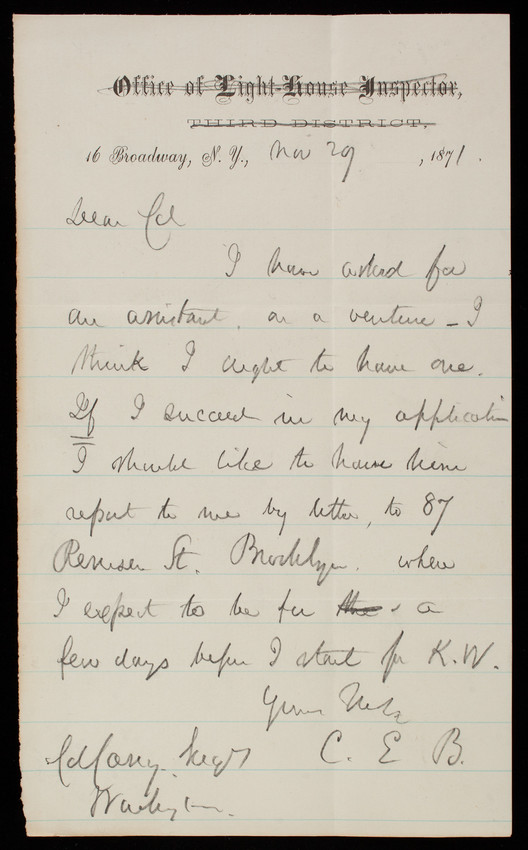 Office of Light-House Inspector,
THIRD DISTRICT,
16 Broadway, N. Y., Nov 29, 1871.
Dear Col
I have asked for
an assistant, on a venture - I
think I ought to have one.
If I succeed in my application
I should like to have him
report to me by letter, to 87
Remsen St. Brooklyn. where
I expect to be for a
few days before I start for K.W.
Yours
C. E. B.
Col Casey.
Washington.